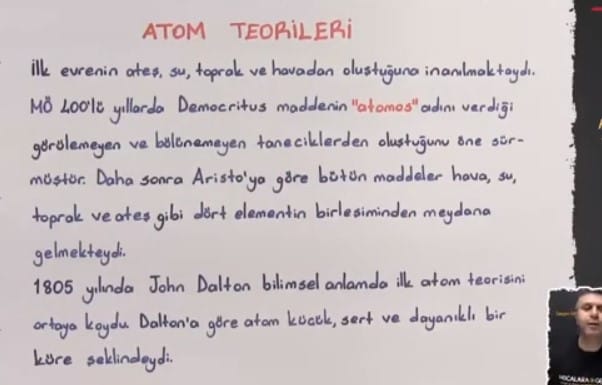 ATOM TEORİLERİ
İlk evrenin ateş, su, toprak ve havadan oluştuğuna inanılmaktaydı.
MÖ 400'lü yıllarda Democritus maddenin "atomos" adını verdiği
görülemeyen ve bölünemeyen taneciklerden oluştuğunu öne sür-
müştür. Daha sonra Aristo'ya göre bütün maddeler hava, su,
toprak ve ateş gibi dört elementin birleşiminden meydana
gelmekteydi.
1805 yılında John Dalton bilimsel anlamda ilk atom teorisini
ortaya koydu. Dalton'a göre atom küçük, sert ve dayanıklı bir
küre şeklindeydi.